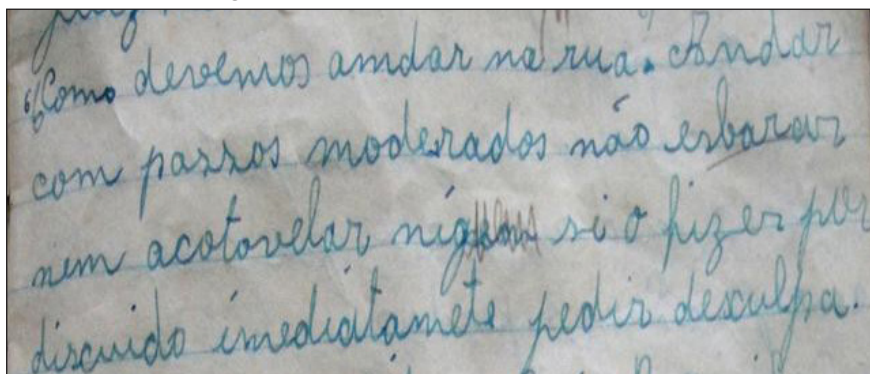 6) Como devemos amdar na rua. Andar
com passos moderados não esbarar
nem acotovelar si o fizer por
discuido imediatamete pedir desculpa.